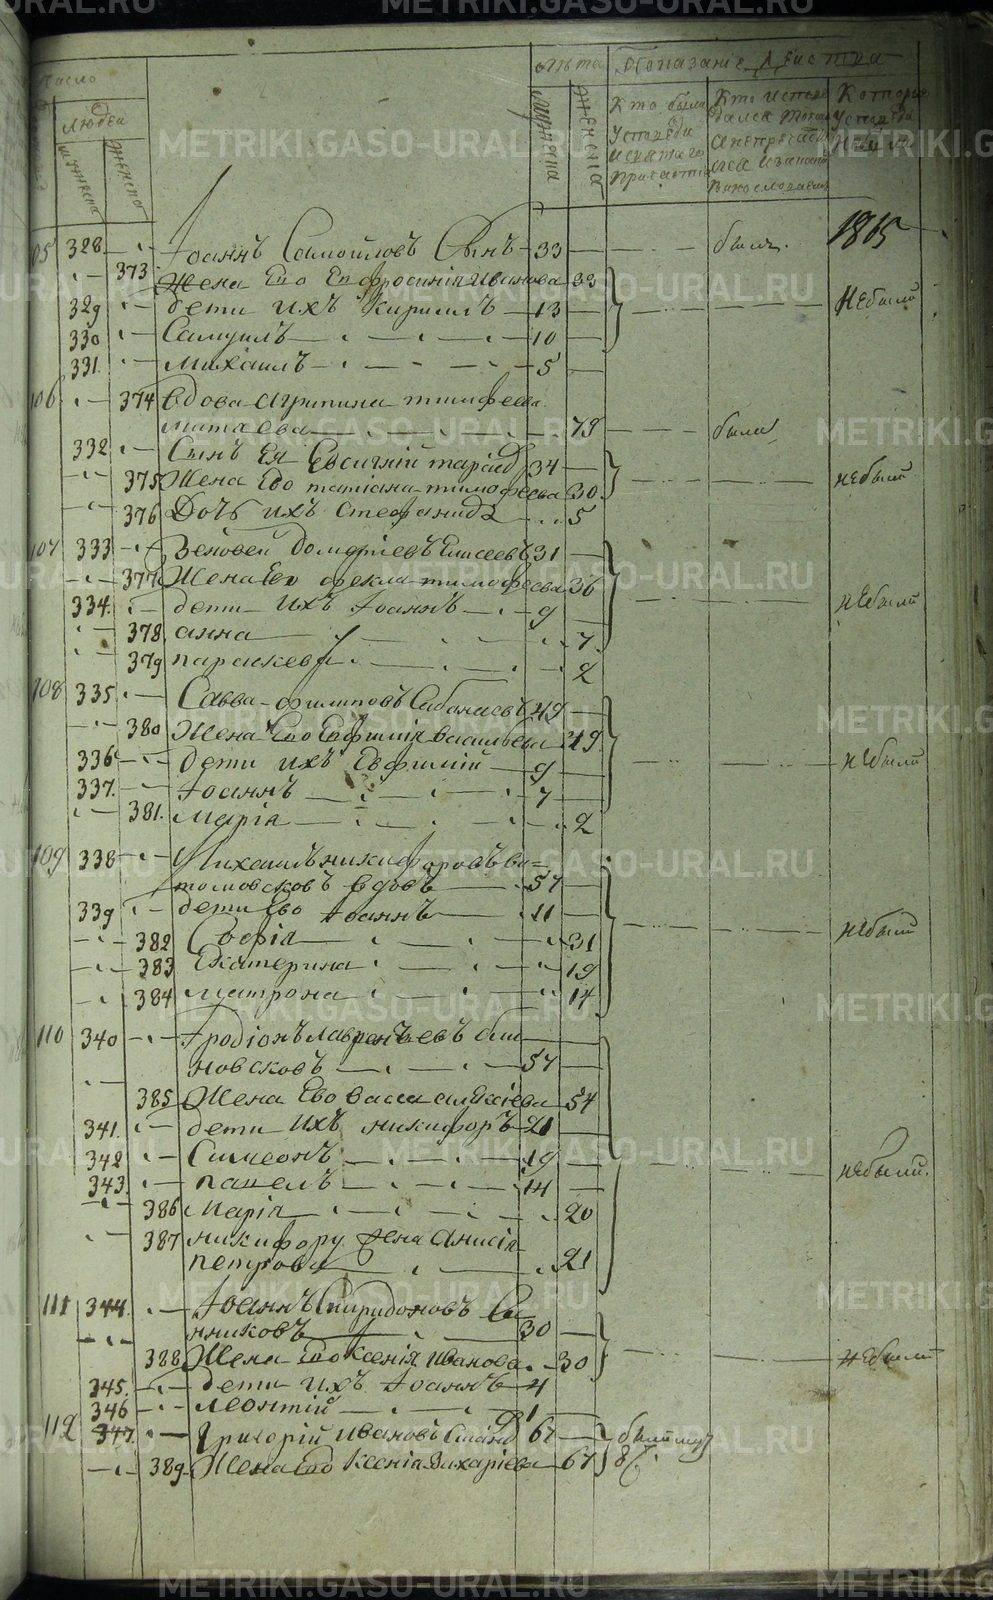 Число
Людей
мужеска
женска
Лѣта
мужеска
женска
Показаніе действа
Кто были у исповеди и святаго причастія
Кто исповедался токмо а не причастился и за какимъ винословіемъ
Которые у исповеди не были
1815
105 328 Іоаннъ Самойловъ Сынъ 33 былъ
373 Жена Его Евфросинія Иванова 33
329 дети ихъ Кириллъ 13 не были
330 Самуилъ 10
331 Михаилъ 5
106 374 Вдова Агрипина Тимофеева
Матвеева 79 была
332 Сынъ Ея Евсигній 34
375 Жена Его Татіана Тимофеева 30 не были
376 Дочь ихъ Стефанида 5
107 333 Зеновей Елисеевъ 31
377 Жена Его Фекла Тимофеева 36
334 дети ихъ Іоаннъ 9 не были
378 анна 7
379 параскева 2
108 335 Савва Филиповъ 49
380 Жена Его Евфимія Васильева 49
336 дети ихъ Евфимій 9 не были
337 Іоаннъ 7
381 Марія 2
109 338 Михаилъ Никифоровъ
вдовъ 57
339 дети Его Іоаннъ 11
382 Софія 31 не были
383 Екатерина 19
384 Матрона 14
110 340 Іродіонъ Лаврентьевъ
новсковъ 57
385 Жена Его Васса Алексіева 54
341 дети ихъ Никифоръ 21
342 Симеонъ 19 не были
343 Павелъ 14
386 Марія 20
387 Никифору жена Анисія
Петрова 21
111 344 Іоаннъ Спиридоновъ
нниковъ 30
388 Жена Его Ксенія Иванова 30 не были
345 дети ихъ Іоаннъ 4
346 Леонтій 1
112 347 Григорій Ивановъ 67 были
389 Жена Его Ксенія Захаріева 67
METRIKI.GASO-URAL.RU